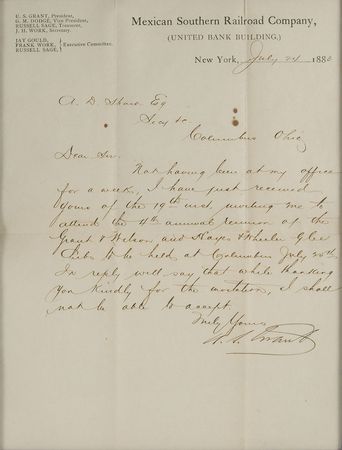 U. S. GRANT, President,
G. M. DODGE, Vice President,
RUSSELL SAGE, Treasurer,
J. H. WORK, Secretary.
JAY GOULD,
FRANK WORK,
RUSSELL SAGE,
Executive Committee.
Mexican Southern Railroad Company,
(UNITED BANK BUILDING,)
New York, July 24 188
A. D. Shaw Esq
Secy &c
Columbus Ohio
Dear Sir.
Not having been at my office
for a week, I have just received
yours of the 19th inst, inviting me to
attend the 4th annual reunion of the
Grant & Wilson and Hayes & Wheeler Glee
Clubs to be held at Columbus July 25th.
In reply will say that while thanking
you kindly for the invitation, I shall
not be able to accept
Truly Yours
U. S. Grant